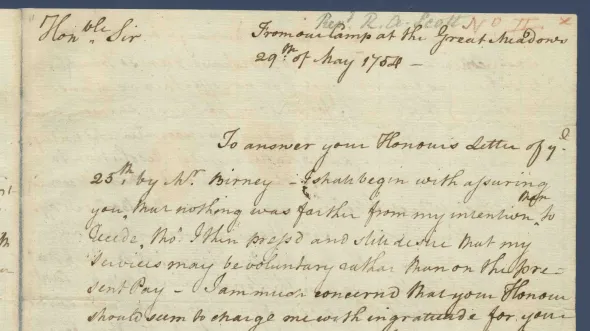 Rept. R. A. Scott No IV. x
Hon.ble Sir From our Camp at the Great Meadows
29th. of May 1754 —
To answer your Honour's Letter of ye.
25th. by Mr. Birney — I shall begin with assuring
you, that nothing was farther from my intention than to
recede, tho' I then press'd and still desire that my
Services may be voluntary rather than on the pre-
sent Pay — I am much concern'd that your Honour
should seem to charge me with ingratitude for your